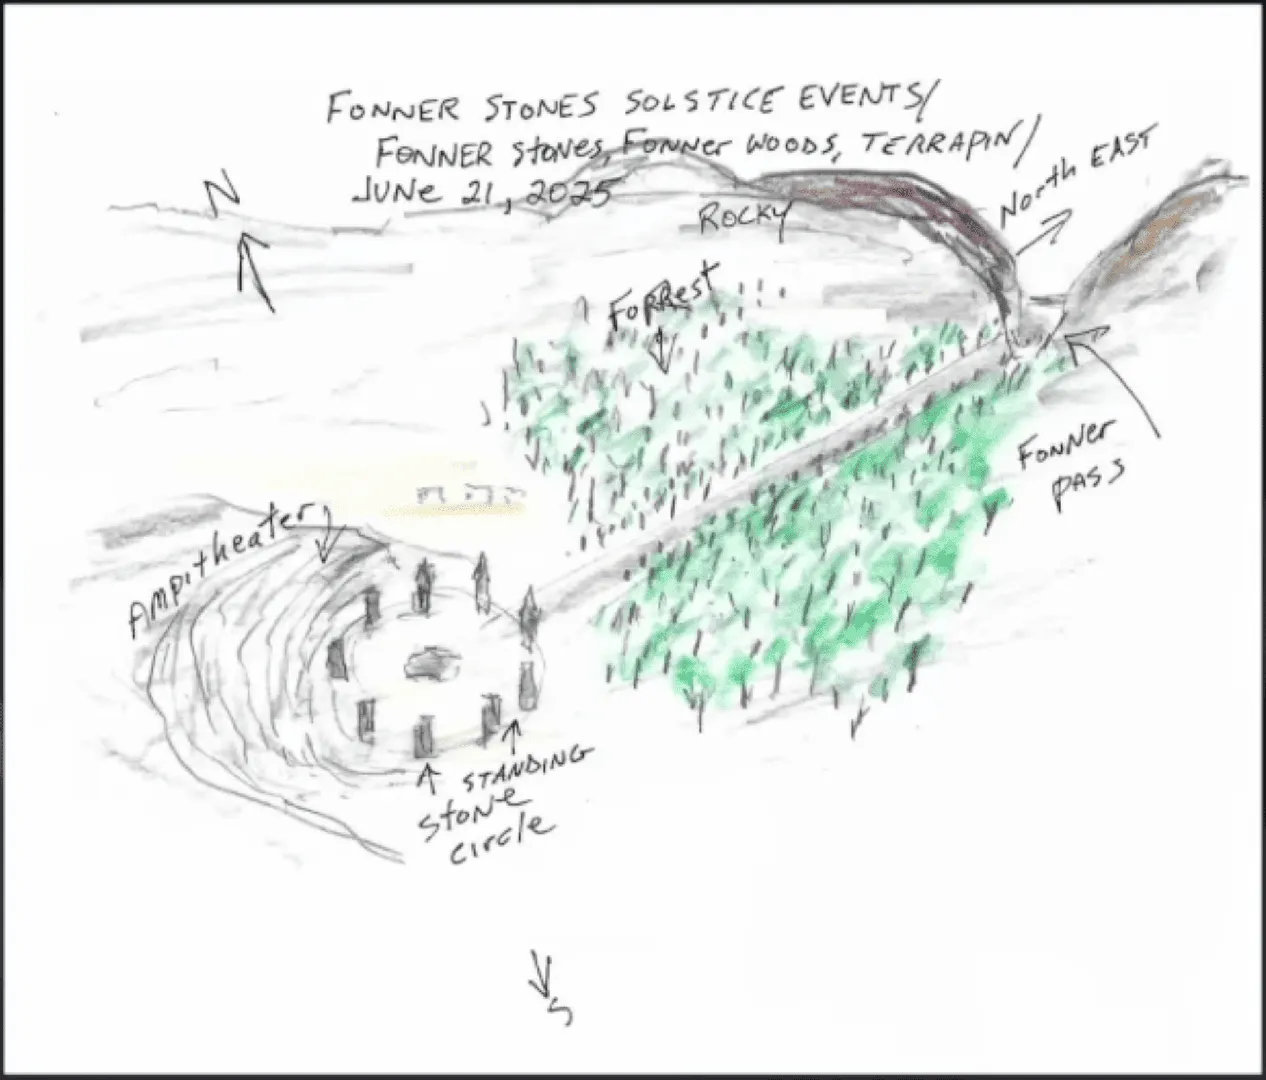 FONNER STONES SOLSTICE EVENTS/
FONNER stones, Fonner WOODS, TERRAPIN/
JUNE 21, 2025
N
North EAST
ROCKY
FORRest
FONNer
PASS
AMPITheater
STANDING
Stone
circle
S